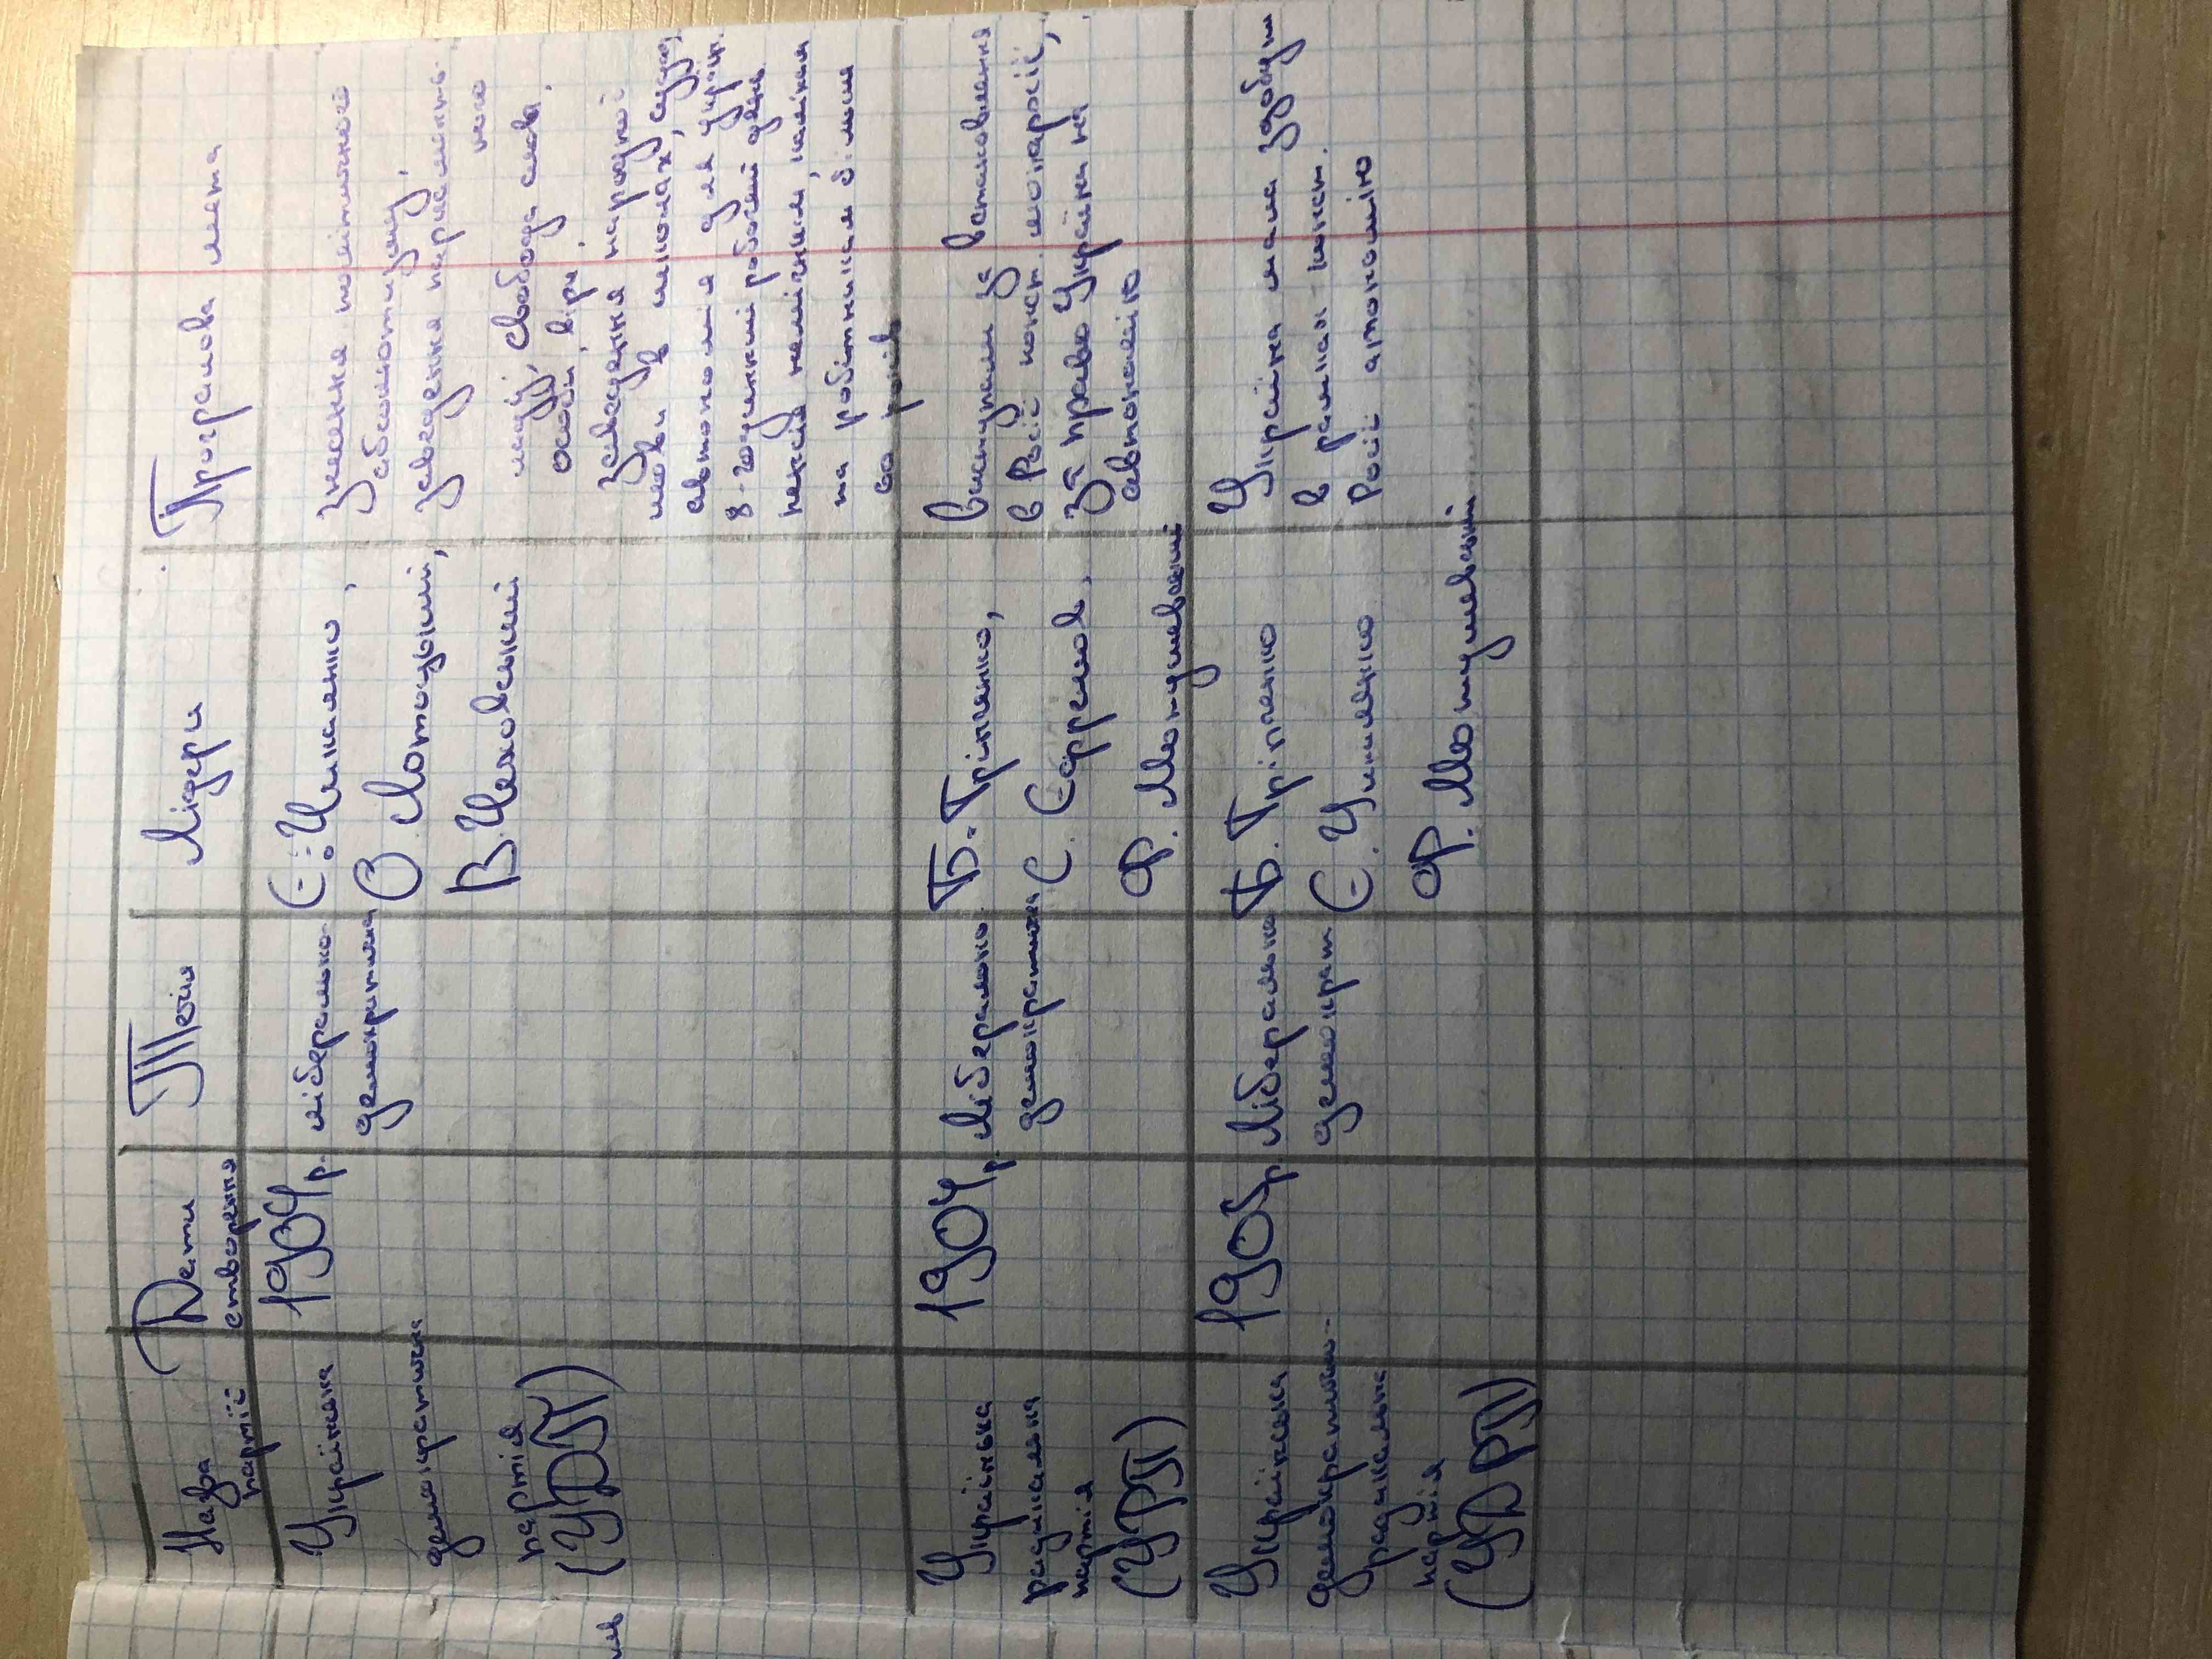 Назва
партії
Дата
створення
Течія
Лідери
Програмова мета
Українська
демократична
партія
(УДП)
1904р.
ліберально-
демократична
Є. Чикаленко,
О. Лотоцький,
В. Чеховський
Знесення політичного
абсолютизму,
заведення парламентсь-
кого
ладу, свобода слова,
особи, віри,
заведення народної
мови в школах, судах,
автономія для україн.
8-годинний робочий день
пенсія
та робітникам більше
60 років
Українська
радикальна
партія
(УРП)
1904р.
Ліберально
демократична
Б. Грінченко,
С. Єфремов,
Ф. Матушевський
Виступали за встановлення
в Росії конст. монархії,
за право України на
автономію
Українська
демократично-
радикальна
партія
(УДРП)
1905р.
Ліберальна
демократ
Б. Грінченко
Є. Чикаленко
Ф. Матушевський
Україна мала здобути
в рамках конст.
Росії атономію